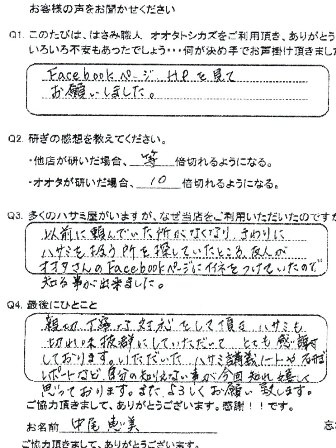 お客様の声をお聞かせください
Q1. このたびは、はさみ職人 オオタトシカズをご利用頂き、ありがとう
いろいろ不安もあったでしょう・・・何が決め手でお声掛け頂きまし
Facebookページ HPを見て
お願いしました。
Q2. 研ぎの感想を教えてください。
・他店が研いだ場合、 等 倍切れるようになる。
・オオタが研いだ場合、 10 倍切れるようになる。
Q3. 多くのハサミ屋がいますが、なぜ当店をご利用いただいたのですか
以前に頼んでいた所がなくなり、まわりに
ハサミを扱う所を探していたところ、友人が
オオタさんのFacebookページにイイネをつけていたので
知る事が出来ました。
Q4. 最後にひとこと
親切、丁寧な対応をして頂き ハサミも
切れ味抜群にしていただいて とても感謝
しております。いただいた ハサミ講義ノートや
レポートなど、自分の知りえない事が今回知れ 嬉しく
思っております。また よろしくお願い致します。
ご協力頂きまして、ありがとうございます。感謝!!です。
お名前 中尾 恵美
ご協力頂きまして、ありがとうございます。